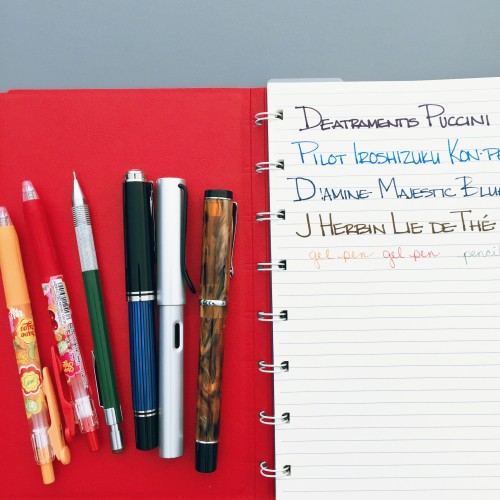 DEATRAMENTIS PUCCINI
PILOT IROSHIZUKU KON-PE
D'AMINE MAJESTIC BLUE
J HERBIN LIE DE-THÉ
gel pen gel pen pencil